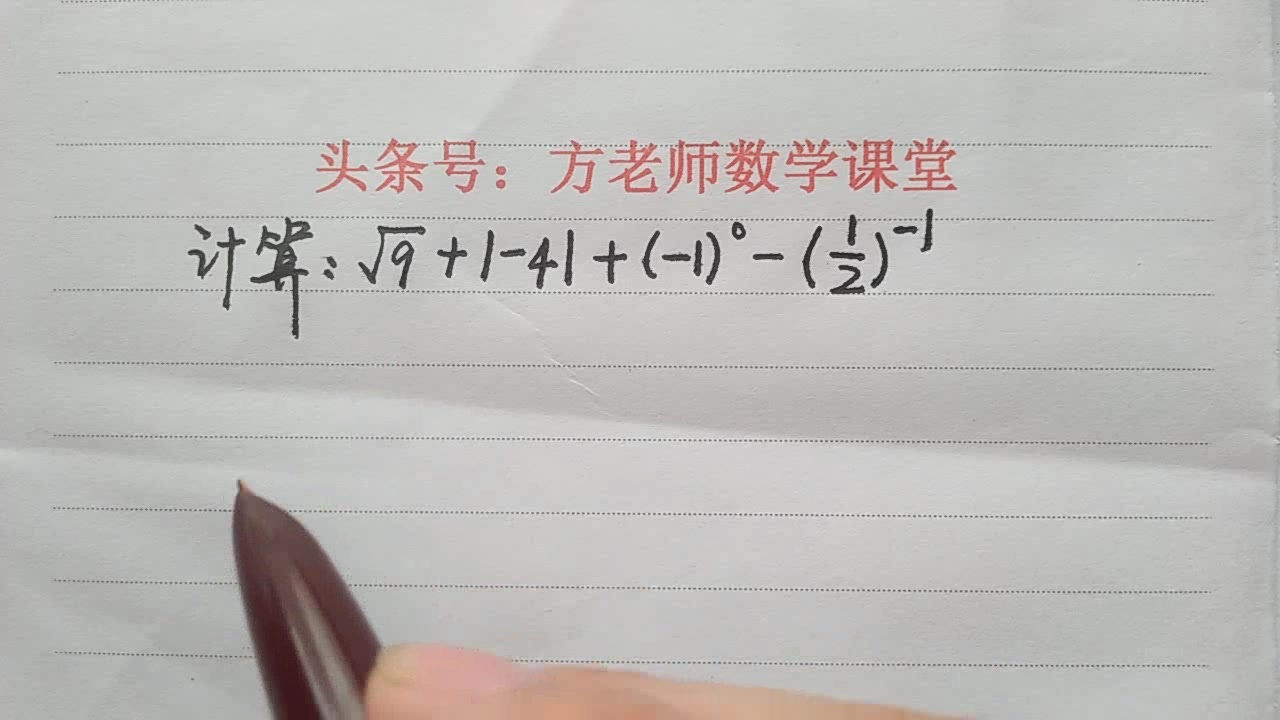 头条号：方老师数学课堂
计算：√9+|-4|+(-1)⁰-(1/2)⁻¹